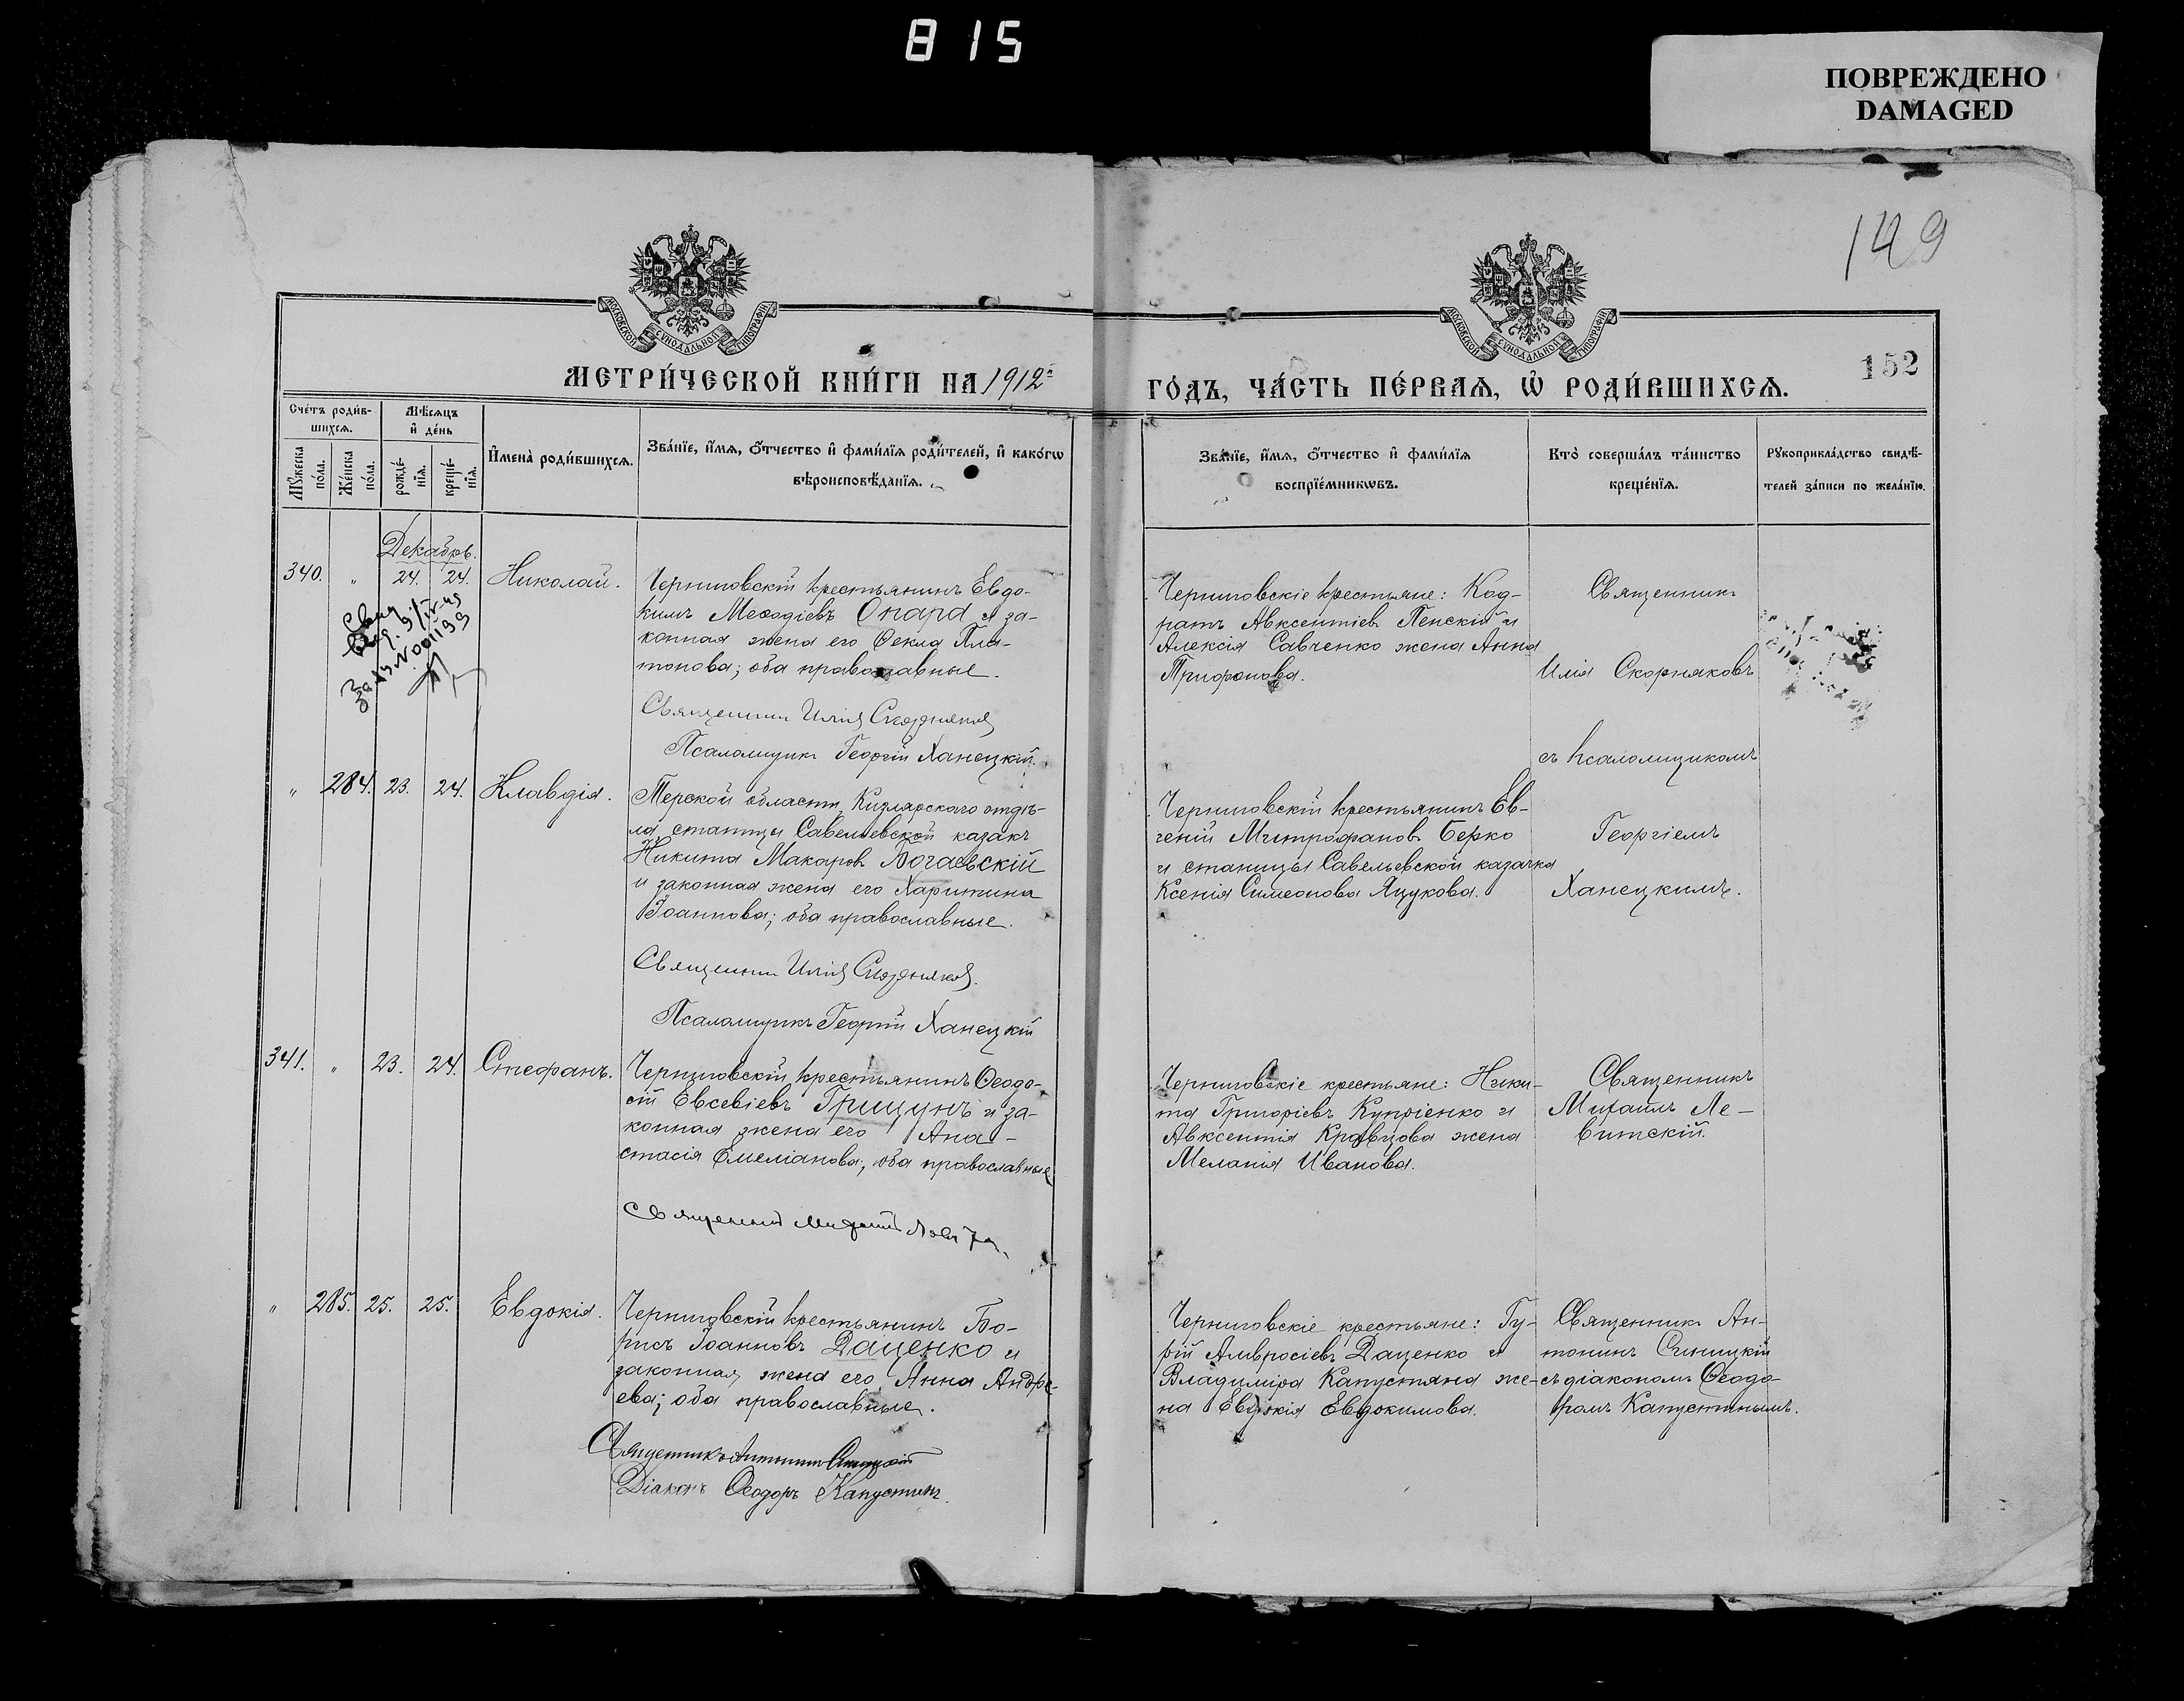 815
ПОВРЕЖДЕНО
DAMAGED
149
152
МОСКОВСКОЙ СѴНОДАЛЬНОЙ ТИПОГРАФІИ
МОСКОВСКОЙ СѴНОДАЛЬНОЙ ТИПОГРАФІИ
МЕТРИ́ЧЕСКОЙ КНИ́ГИ НА 1912й
ГО́ДЪ, ЧА́СТЬ ПЕ́РВАѦ, Ѡ҆ РОДИ́ВШИХСѦ.
Сче́тъ роди́в-
шихсѧ.
Мꙋжеска
по́ла.
Же́нска
по́ла.
Мѣ́сѧцъ
и҆ де́нь
рожде́-
нїѧ.
креще́-
нїѧ.
И҆мена̀ роди́вшихсѧ.
Зва́нїе, и҆́мѧ, ѻ҆́тчество и҆ фами́лїѧ роди́телей, и҆ како́гѡ
вѣроисповѣ́данїѧ.
Зва́нїе, и҆́мѧ, ѻ҆́тчество и҆ фами́лїѧ
воспрїе́мникѡвъ.
Кто̀ соверша́лъ та́инство
креще́нїѧ.
Рꙋкоприкла́дство свидѣ́-
телей за́писи по жела́нїю.
Декабрь.
340. „ 24. 24. Николай.
Черниговскій крестьянинъ Евдо-
кимъ Меѳодіевъ Опара и за-
конная жена его Ѳекла Пла-
тонова; оба православные.
Священникъ Илія Скорняковъ
Псаломщикъ Георгій Ханецкій.
Черниговскіе крестьяне: Код-
ратъ Авксентіевъ Пенскій и
Алексія Савченко жена Анна
Трифонова.
Священникъ
Илія Скорняковъ
съ псаломщикомъ
Георгіемъ
Ханецкимъ.
„ 284. 23. 24. Клавдія.
Терской области, Кизлярскаго отдѣ-
ла, станицы Савельевской казакъ
Никита Макаровъ Богаевскій
и законная жена его Харитина
Іоаннова; оба православные.
Священникъ Илія Скорняковъ.
Псаломщикъ Георгій Ханецкій
Черниговскій крестьянинъ Ев-
геній Митрофановъ Берко
и станицы Савельевской казачка
Ксенія Симеонова Яцукова.
341. „ 23. 24. Стефанъ.
Черниговскій крестьянинъ Ѳеодо-
сій Евсевіевъ Грищунъ и за-
конная жена его Ана-
стасія Емеліанова; оба православные
Священникъ Михаилъ
Черниговскіе крестьяне: Ники-
та Григоріевъ Купріенко и
Авксентія Кравцова жена
Меланія Иванова.
Священникъ
Михаилъ Ле-
витскій.
„ 285. 25. 25. Евдокія.
Черниговскій крестьянинъ Бо-
рисъ Іоанновъ Даценко и
законная жена его Анна Андре-
ева; оба православные.
Священникъ Антонинъ Синицкій
Діаконъ Ѳеодоръ Капустинъ.
Черниговскіе крестьяне: Гу-
рій Амвросіевъ Даценко и
Владиміра Капустяна же-
на Евдокія Евдокимова.
Священникъ Ан-
тонинъ Синицкій
съ діакономъ Ѳеодо-
ромъ Капустинымъ.